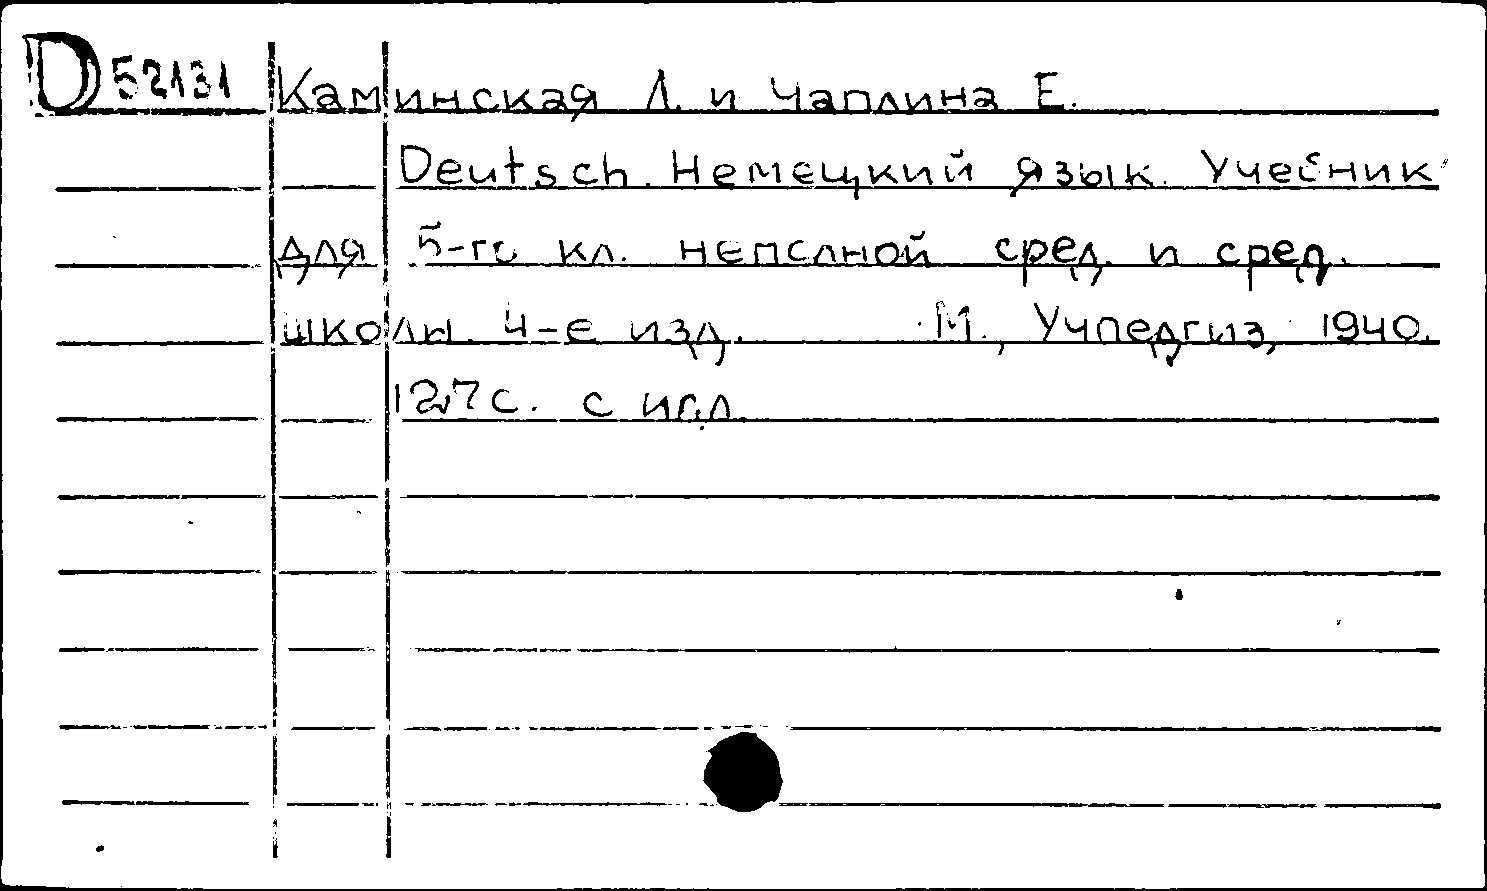 D 52131 Каминская Л. и Чаплина Е.
Deutsch. Немецкий язык. Учебник
для 5-го кл. неполной сред. и сред.
школы. 4-е изд. М., Учпедгиз, 1940.
127 с. с илл.